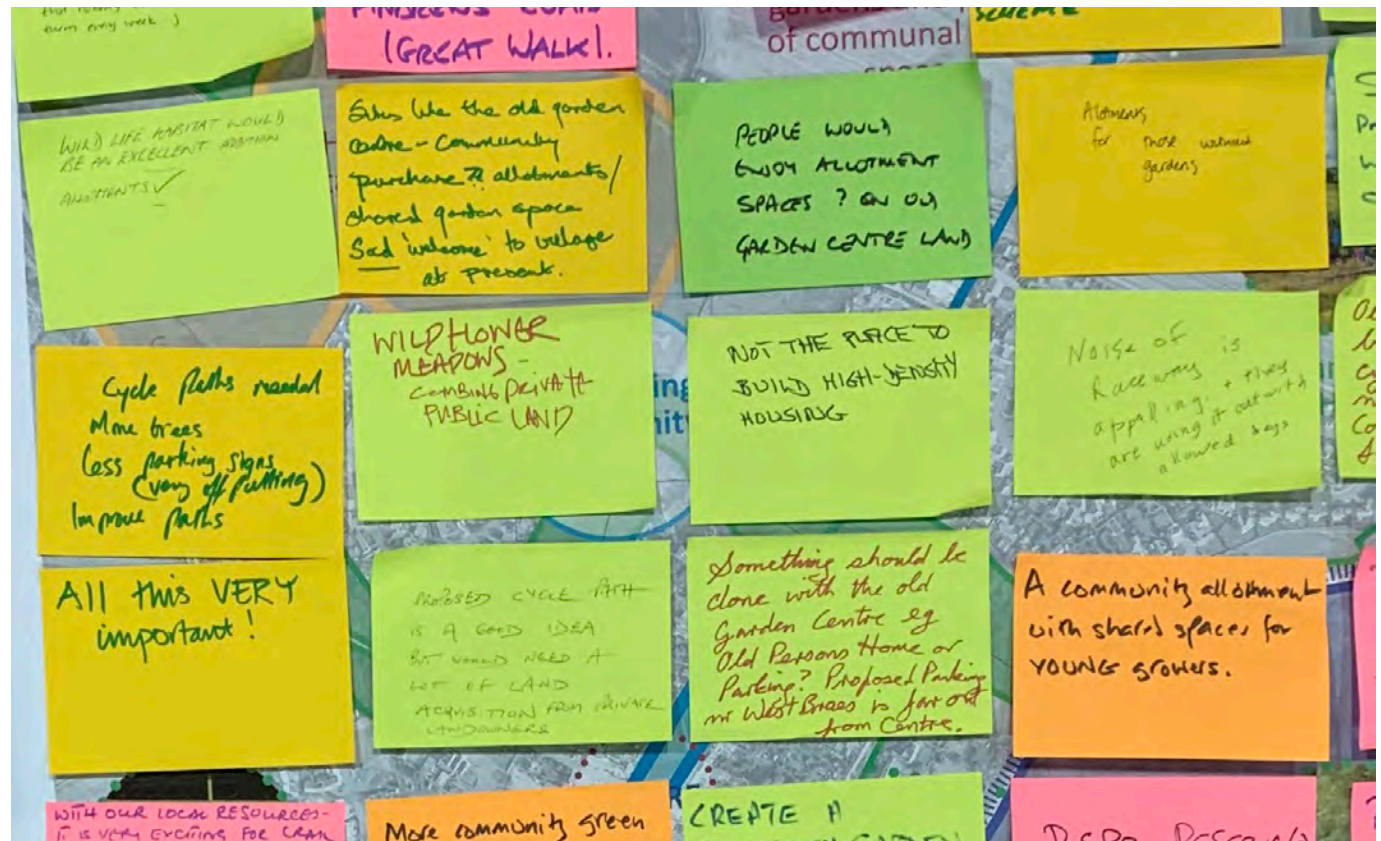 burn every week )
(GREAT WALK).
of communal
SCHEME
WILD LIFE HABITAT WOULD
BE AN EXCELLENT ADDITION
ALLOTMENTS ✓
Sites like the old garden
centre - Community
purchase ?? allotments/
shared garden space
Sad 'welcome' to village
at present.
PEOPLE WOULD
ENJOY ALLOTMENT
SPACES ? ON OLD
GARDEN CENTRE LAND
Alotments
for those without
gardens
Cycle Paths needed
More trees
Less parking signs
(very off putting)
Improve paths
WILDFLOWER
MEADOWS -
COMBING PRIVATE
PUBLIC LAND
NOT THE PLACE TO
BUILD HIGH-DENSITY
HOUSING
Noise of
Raceway is
appalling. + they
are using it outwith
allowed days
All this VERY
important!
PROPOSED CYCLE PATH
IS A GOOD IDEA
BUT WOULD NEED A
LOT OF LAND
ACQUISITION FROM PRIVATE
LANDOWNERS
Something should be
done with the old
Garden Centre eg
Old Persons Home or
Parking? Proposed Parking
nr West Braes is far out
from Centre.
A community allotment
with shared spaces for
YOUNG growers.
WITH OUR LOCAL RESOURCES-
IT IS VERY EXCITING FOR CRAIL
More community green
CREATE A